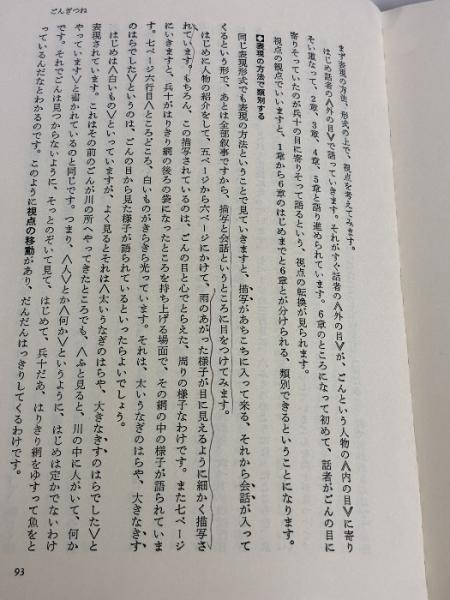 ごんぎつね
まず表現の方法、形式の上で、視点を考えてみます。
はじめ話者の＾外の目∨で語っていきます。それがすぐ話者の＾外の目∨が、ごんという人物の＾内の目∨に寄り
そい重なって、2章、3章、4章、5章と語り進められています。6章のところになって初めて、話者がごんの目に
寄りそっていたのが兵十の目に寄りそって語るという、視点の転換が見られます。
視点の観点でいいますと、1章から6章のはじめまでと6章とが分けられる、類別できるということになります。
◆表現の方法で類別する
同じ表現形式でも表現の方法ということで見ていきますと、描写があちこちに入って来る、それから会話が入って
くるという形で、あとは全部叙事ですから、描写と会話というところに目をつけてみます。
はじめに人物の紹介をして、五ページから六ページにかけて、雨のあがった様子が目に見えるように細かく描写さ
れています。もちろん、この描写されているのは、ごんの目と心でとらえた、周りの様子なわけです。また七ページ
にいきますと、兵十がはりきり網の後ろの袋になったところを持ち上げる場面で、その網の中の様子が語られていま
す。七ページ六行目＾ところどころ、白いものがきらきら光っています。それは、太いうなぎのはらや、大きなきす
のはらでした∨というのは、ごんの目から見た様子が語られているといったらよいでしょう。
はじめは＾白いもの∨といっていますが、よく見るとそれは＾太いうなぎのはらや、大きなきすのはらでした∨と
表現されています。これはその前のごんが川の所へやってきたところでも、＾ふと見ると、川の中に人がいて、何か
やっています∨と書かれているのと同じです。つまり、＾人∨とか＾何か∨というように、はじめは定かでないわけ
です。それでごんは見つからないように、そっとのぞいて見て、はじめて、兵十だあ、はりきり網をゆすって魚をと
っているんだなとわかるのです。このように視点の移動があり、だんだんはっきりしてくるわけです。
93